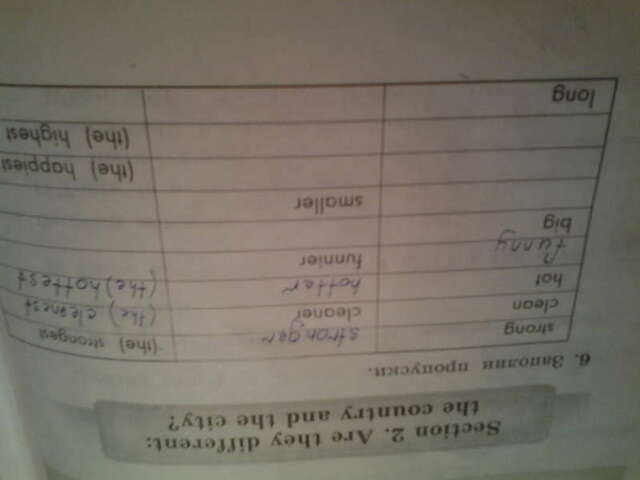 Section 2. Are they different:
the country and the city?
6. Заполни пропуски.
strong stronger (the) strongest
clean cleaner (the) cleanest
hot hotter (the) hottest
funny funnier
big
smaller
(the) happiest
(the) highest
long